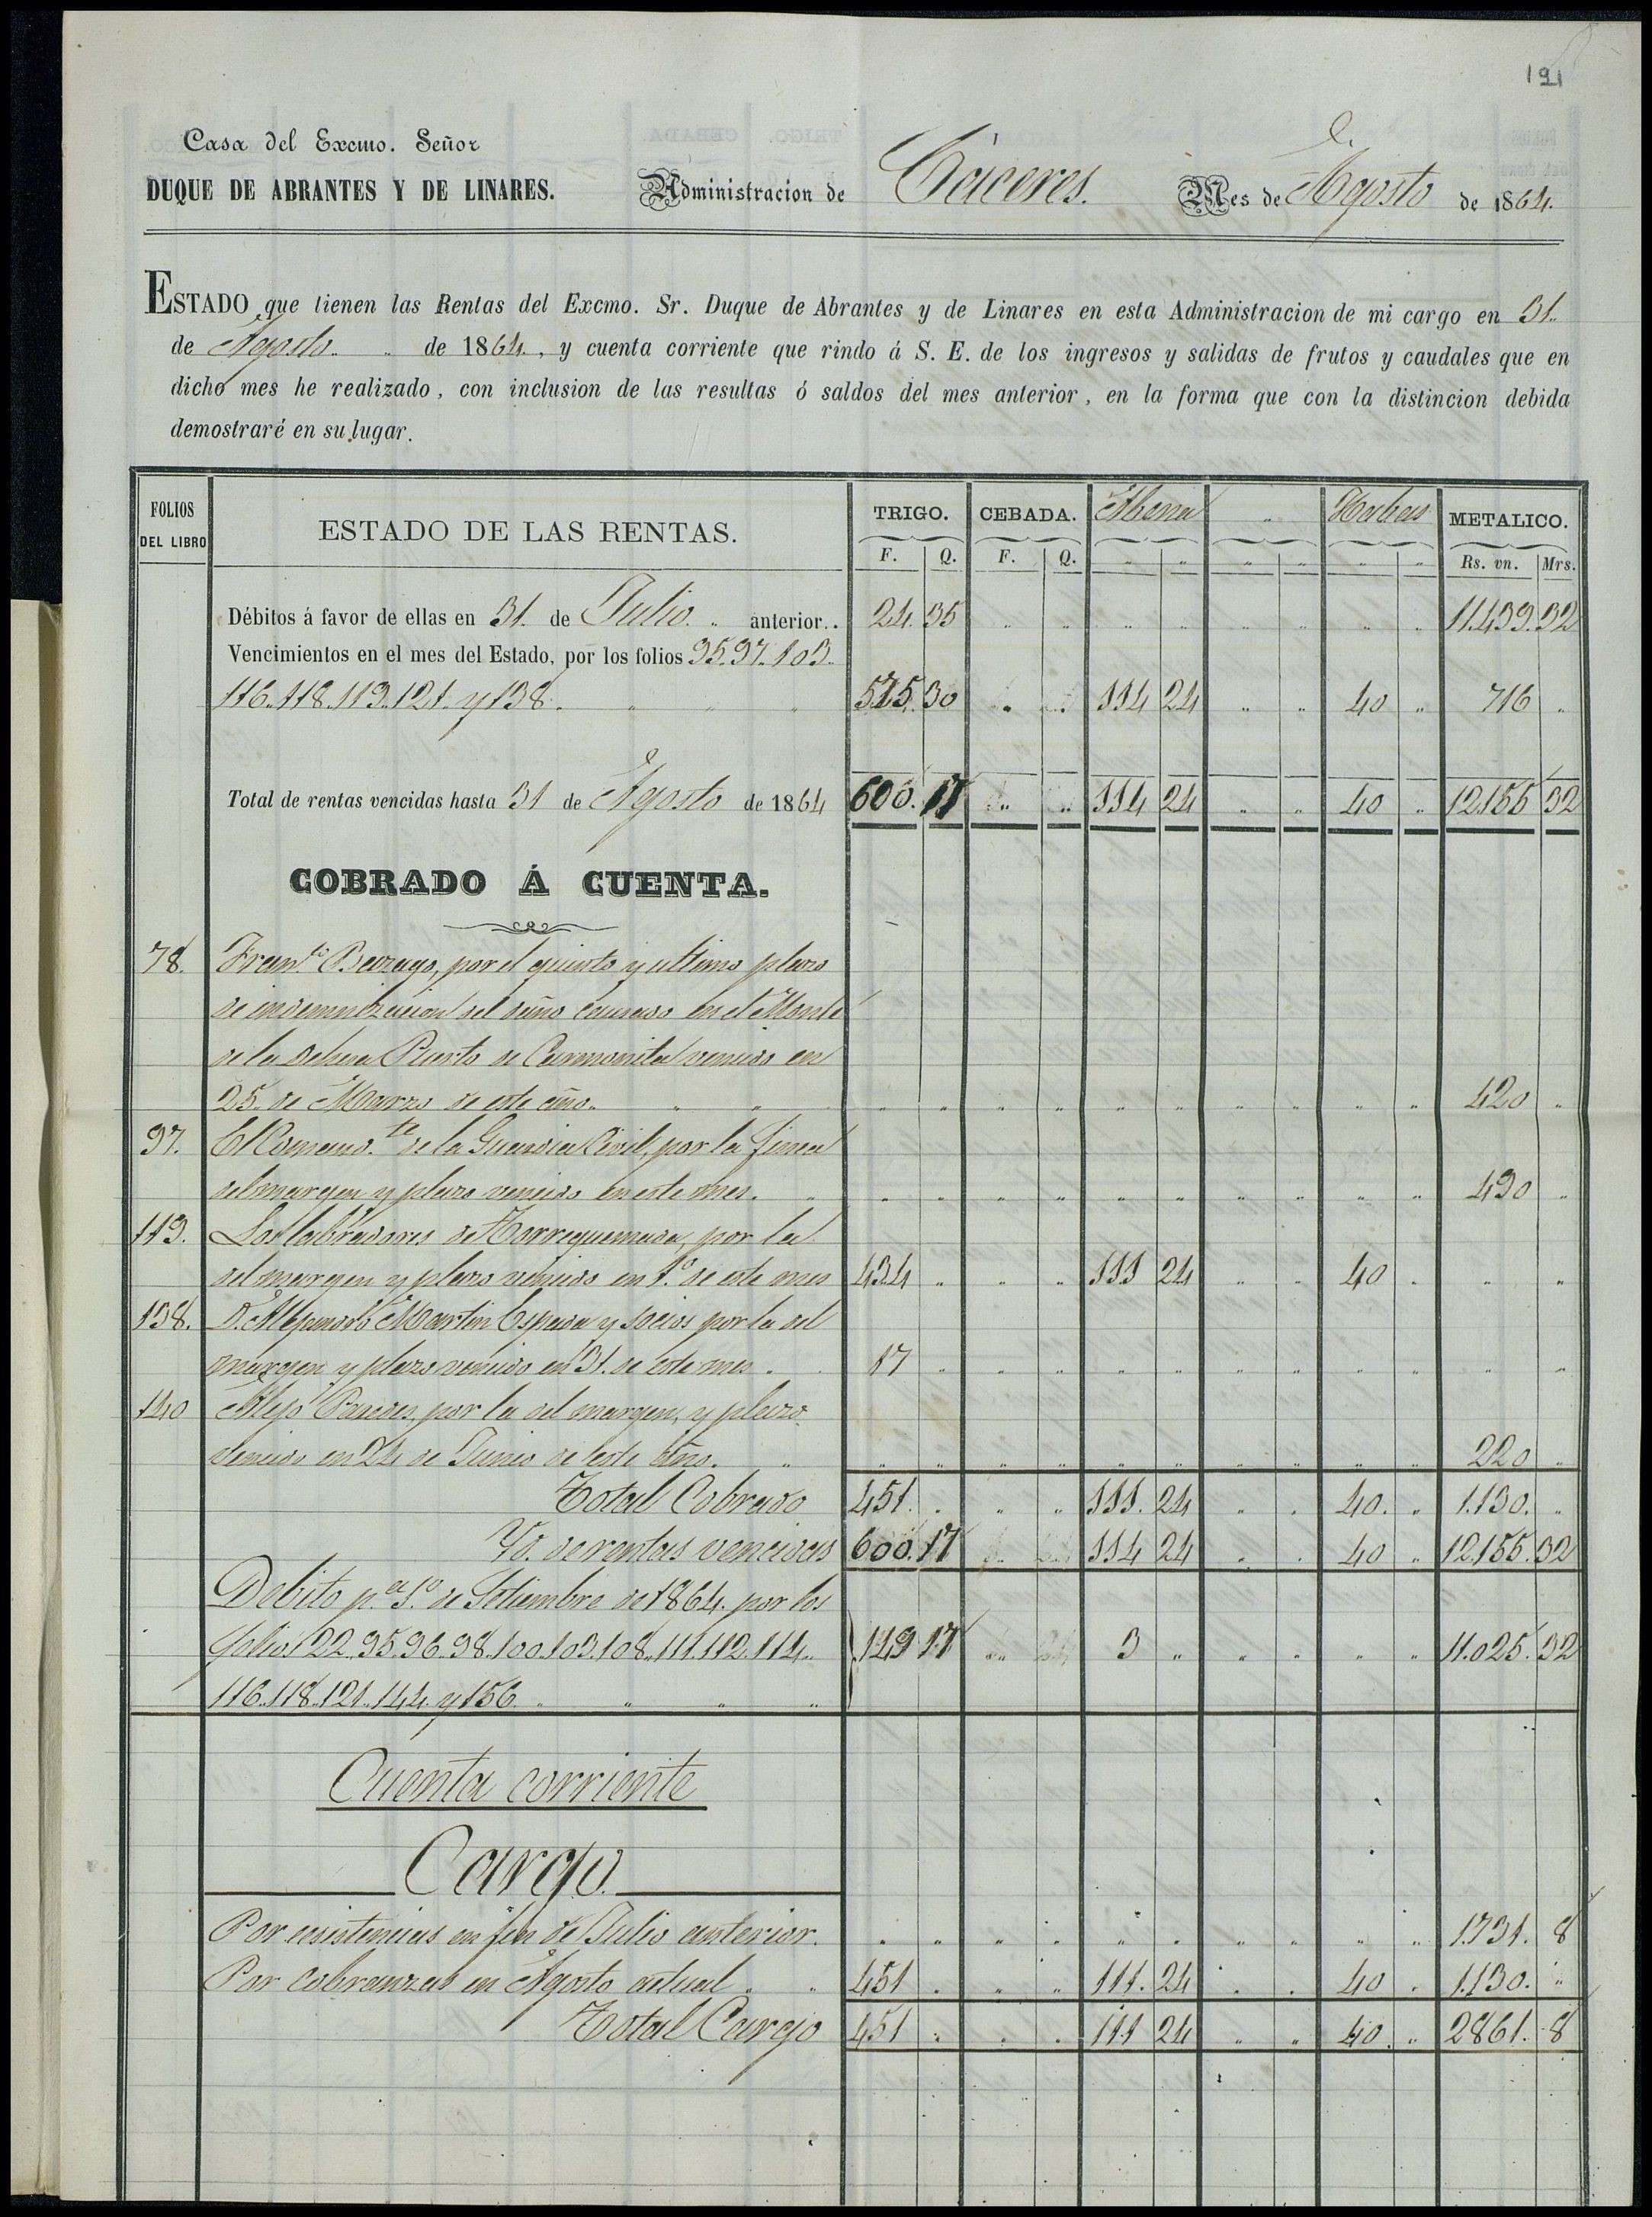 191
Casa del Excmo. Señor
DUQUE DE ABRANTES Y DE LINARES. Administracion de Cáceres. Mes de Agosto de 1864.
ESTADO que tienen las Rentas del Excmo. Sr. Duque de Abrantes y de Linares en esta Administracion de mi cargo en 31.
de Agosto. " de 1864., y cuenta corriente que rindo á S. E. de los ingresos y salidas de frutos y caudales que en
dicho mes he realizado, con inclusion de las resultas ó saldos del mes anterior, en la forma que con la distincion debida
demostraré en su lugar.
FOLIOS DEL LIBRO ESTADO DE LAS RENTAS. TRIGO. CEBADA. Abena " Habas METALICO.
F. Q. F. Q. " " " " " " Rs. vn. Mrs.
Débitos á favor de ellas en 31. de Julio. " anterior.. 24. 35 " " " " " " " " 11.439. 32
Vencimientos en el mes del Estado, por los folios 95. 97. 103.
116. 118. 119. 121. y 138. " " " 575. 30 " " 114 24 " " 40 " 716 "
Total de rentas vencidas hasta 31 de Agosto de 1864 600. 17 " " 114 24 " " 40 " 12.155 32
COBRADO Á CUENTA.
78. Fran.co Bazago, por el quinto y ultimo plazo
de indemnizacion del daño causado en el Monte
de la dehesa Puerto de Carmonita vencido en
25. de Marzo de este año. " " " " " " " " " " " " 420 "
97. El Comand.te de la Guardia Civil, por la finca
del margen y plazo vencido en este mes. " " " " " " " " " " " 490 "
119. Los labradores de Torrequemada, por la
del margen y plazo vencido en 1.o de este mes 434 " " " 111 24 " " 40 " " "
138. D. Alejandro Martin Espada y socios por la del
margen y plazo vencido en 31. de este mes. 17 " " " " " " " " " " "
140 Alejo Paredes, por la del margen, y plazo
vencido en 24 de Junio de este año. " " " " " " " " " " " 220 "
Total Cobrado 451. " " " 111. 24 " " 40. " 1.130. "
Yd. de rentas vencidas 600. 17 " " 114 24 " " 40 " 12.155. 32
Debito p.a 1.o de Setiembre de 1864. por los
folios 22. 95. 96. 98. 100. 103. 108. 111. 112. 114. 149 17 " " 3 " " " " " 11.025. 32
116. 118. 121. 144. y 156. " " " "
Cuenta corriente
Cargo.
Por existencias en fin de Julio anterior. " " " " " " " " " " 1731. 8
Por cobranzas en Agosto actual. " 451 " " " 111. 24 " " 40 " 1.130. "
Total Cargo 451 " " " 111 24 " " 40. " 2861. 8